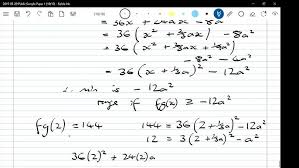 = 36x² + 24ax − 8a²
= 36(x² + ⅔ax) − 8a²
= 36(x² + ⅔ax + ⅑a²)
− 8a² − 4a²
= 36(x + ⅓a)² − 12a²
∴ min is − 12a²
range of fg(x) ≥ −12a²
fg(2) = 144 144 = 36(2 + ⅓a)² − 12a²
12 = 3(2 + ⅓a)² − a²
36(2)² + 24(2)a